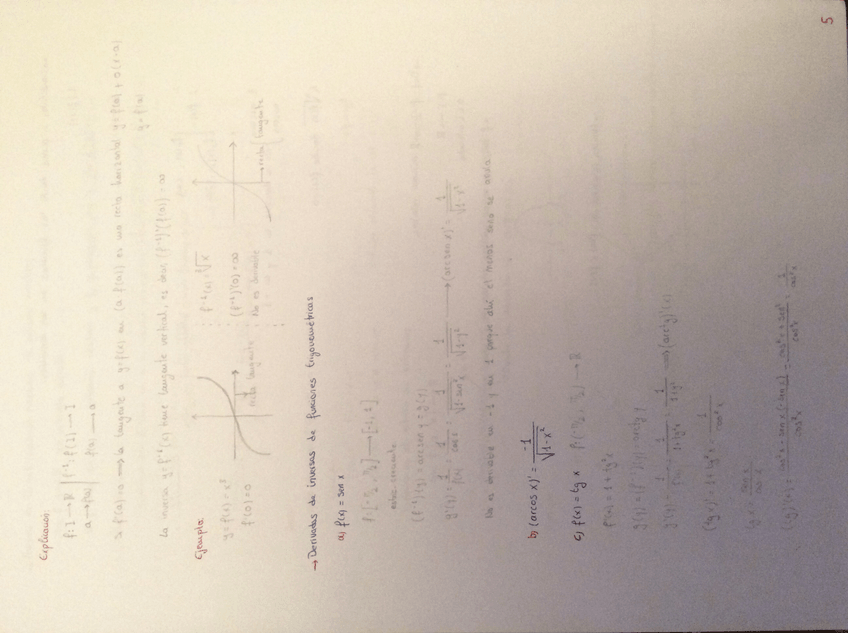 Explicación:
f: I → R | f⁻¹: f(I) → I
a → f(a) | f(a) → a
Si f'(a)=0 → la tangente a y=f(x) en (a, f(a)) es una recta horizontal y=f(a)+0(x-a)
y=f(a)
La inversa y=f⁻¹(x) tiene tangente vertical, es decir, (f⁻¹)'(f(a))=∞
Ejemplo:
y=f(x)=x³
f'(0)=0
recta tangente
f⁻¹(x)=∛x
(f⁻¹)'(0)=∞
No es derivable
recta tangente
→ Derivadas de inversas de funciones trigonométricas
a) f(x)=sen x
f: [-π/2, π/2] → [-1, 1]
estric. creciente
(f⁻¹)(y)=arcsen y = g(y)
g'(y)=1/f'(x)=1/cos x=1/√(1-sen²x)=1/√(1-y²) → (arcsen x)'=1/√(1-x²)
No es derivable en -1 y en 1 porque ahí el
b) (arcos x)'=-1/√(1-x²)
c) f(x)=tg x f: (-π/2, π/2) → R
f'(x)=1+tg²x
g(y)=(f⁻¹)(y)=arctg y
g'(y)=1/f'(x)=1/1+tg²x=1/1+y²
(tg x)'=1+tg²x=1/cos²x
tg x=sen x/cos x
(tg x)'=cos²x-sen x(-sen x)/cos²x=cos²x+sen²x/cos²x=1/cos²x
5